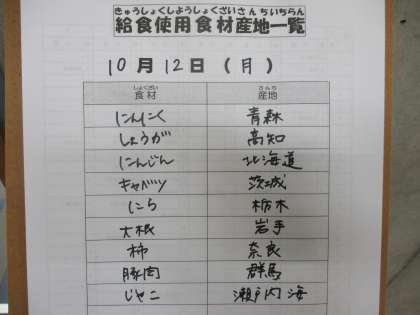 きゅうしょくしようしょくざいさんちいちらん
給食使用食材産地一覧
10月12日(月)
しょくざい さんち
食材 産地
にんにく 青森
しょうが 高知
にんじん 北海道
キャベツ 茨城
にら 栃木
大根 岩手
柿 奈良
豚肉 群馬
じゃこ 瀬戸内海